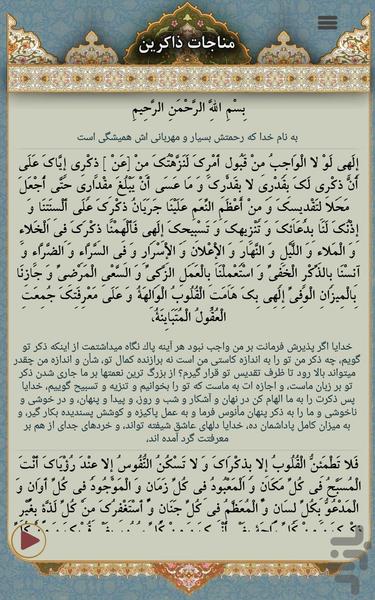 مناجات ذاکرین
بِسْمِ اللَّهِ الرَّحْمَنِ الرَّحِيمِ
به نام خدا که رحمتش بسیار و مهربانی اش همیشگی است
إِلَهِي لَوْ لَا الْوَاجِبُ مِنْ قَبُولِ أَمْرِكَ لَنَزَّهْتُكَ مِنْ [عَنْ ] ذِكْرِي إِيَّاكَ عَلَى
أَنَّ ذِكْرِي لَكَ بِقَدْرِي لَا بِقَدْرِكَ وَ مَا عَسَى أَنْ يَبْلُغَ مِقْدَارِي حَتَّى أُجْعَلَ
مَحَلًا لِتَقْدِيسِكَ وَ مِنْ أَعْظَمِ النِّعَمِ عَلَيْنَا جَرَيَانُ ذِكْرِكَ عَلَى أَلْسِنَتِنَا وَ
إِذْنُكَ لَنَا بِدُعَائِكَ وَ تَنْزِيهِكَ وَ تَسْبِيحِكَ إِلَهِي فَأَلْهِمْنَا ذِكْرَكَ فِي الْخَلَاءِ
وَ الْمَلَاءِ وَ اللَّيْلِ وَ النَّهَارِ وَ الْإِعْلَانِ وَ الْأِسْرَارِ وَ فِي السَّرَّاءِ وَ الضَّرَّاءِ وَ
آنِسْنَا بِالذِّكْرِ الْخَفِيِّ وَ اسْتَعْمِلْنَا بِالْعَمَلِ الزَّكِيِّ وَ السَّعْيِ الْمَرْضِيِّ وَ جَازِنَا
بِالْمِيزَانِ الْوَفِيِّ إِلَهِي بِكَ هَامَتِ الْقُلُوبُ الْوَالِهَةُ وَ عَلَى مَعْرِفَتِكَ جُمِعَتِ
الْعُقُولُ الْمُتَبَايِنَةُ،
خدایا اگر پذیرش فرمانت بر من واجب نبود هر آینه پاك نگاه میداشتمت از اینکه ذکر تو
گویم، چه ذکر من تو را به اندازه کاستی من است نه برازنده کمال تو، شأن و اندازه من چقدر
میتواند بالا رود تا ظرف تقدیس تو قرار گیرم؟ از بزرگ ترین نعمتها بر ما جاری شدن ذکر
تو بر زبان ماست، و اجازه ات به ماست که تو را بخوانیم و تنزیه و تسبیح گوییم، خدایا
پس ذکرت را به ما الهام کن در نهان و آشکار و شب و روز، و پیدا و پنهان، و در خوشی و
ناخوشی و ما را به ذکر پنهان مأنوس فرما و به عمل پاکیزه و کوشش پسندیده بکار گیر، و
به میزان کامل پاداشمان ده، خدایا دلهای عاشق شیفته تواند، و خردهای جدای از هم بر
معرفتت گرد آمده اند،
فَلَا تَطْمَئِنُّ الْقُلُوبُ إِلا بِذِكْرَاكَ وَ لَا تَسْكُنُ النُّفُوسُ إِلا عِنْدَ رُؤْيَاكَ أَنْتَ
الْمُسَبَّحُ فِي كُلِّ مَكَانٍ وَ الْمَعْبُودُ فِي كُلِّ زَمَانٍ وَ الْمَوْجُودُ فِي كُلِّ أَوَانٍ وَ
الْمَدْعُوُّ بِكُلِّ لِسَانٍ وَ الْمُعَظَّمُ فِي كُلِّ جَنَانٍ وَ أَسْتَغْفِرُكَ مِنْ كُلِّ لَذَّةٍ بِغَيْرِ
بازار